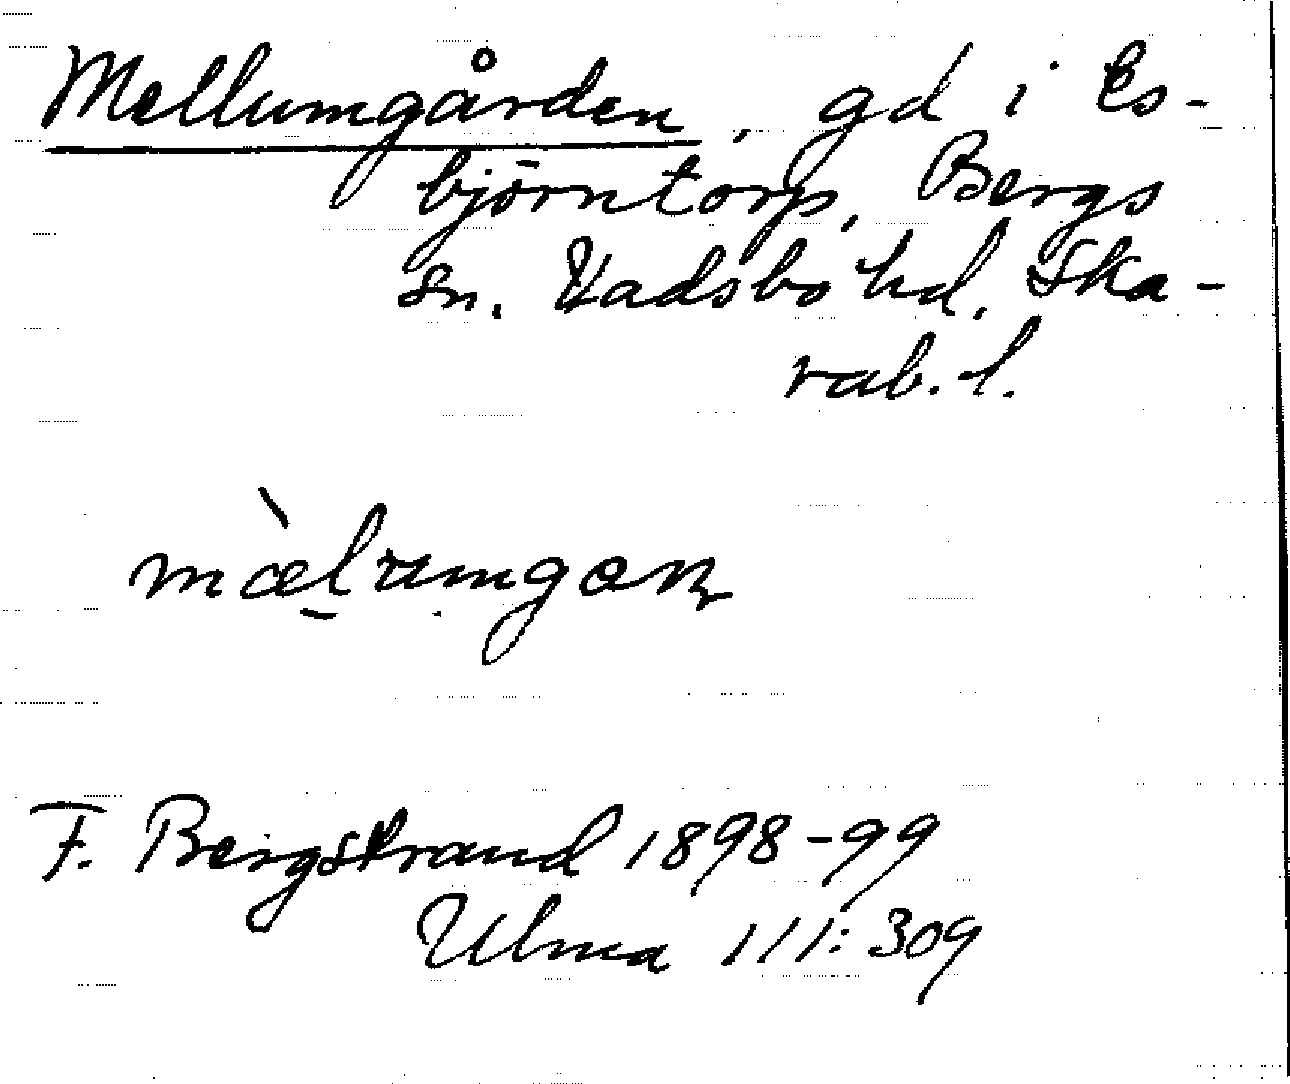 Mellumgården, gd i Es-
björntorp, Bergs
sn. Vadsbo hd. Ska-
rab. l.
F. Bergstrand 1898-99
Ulma 111:309